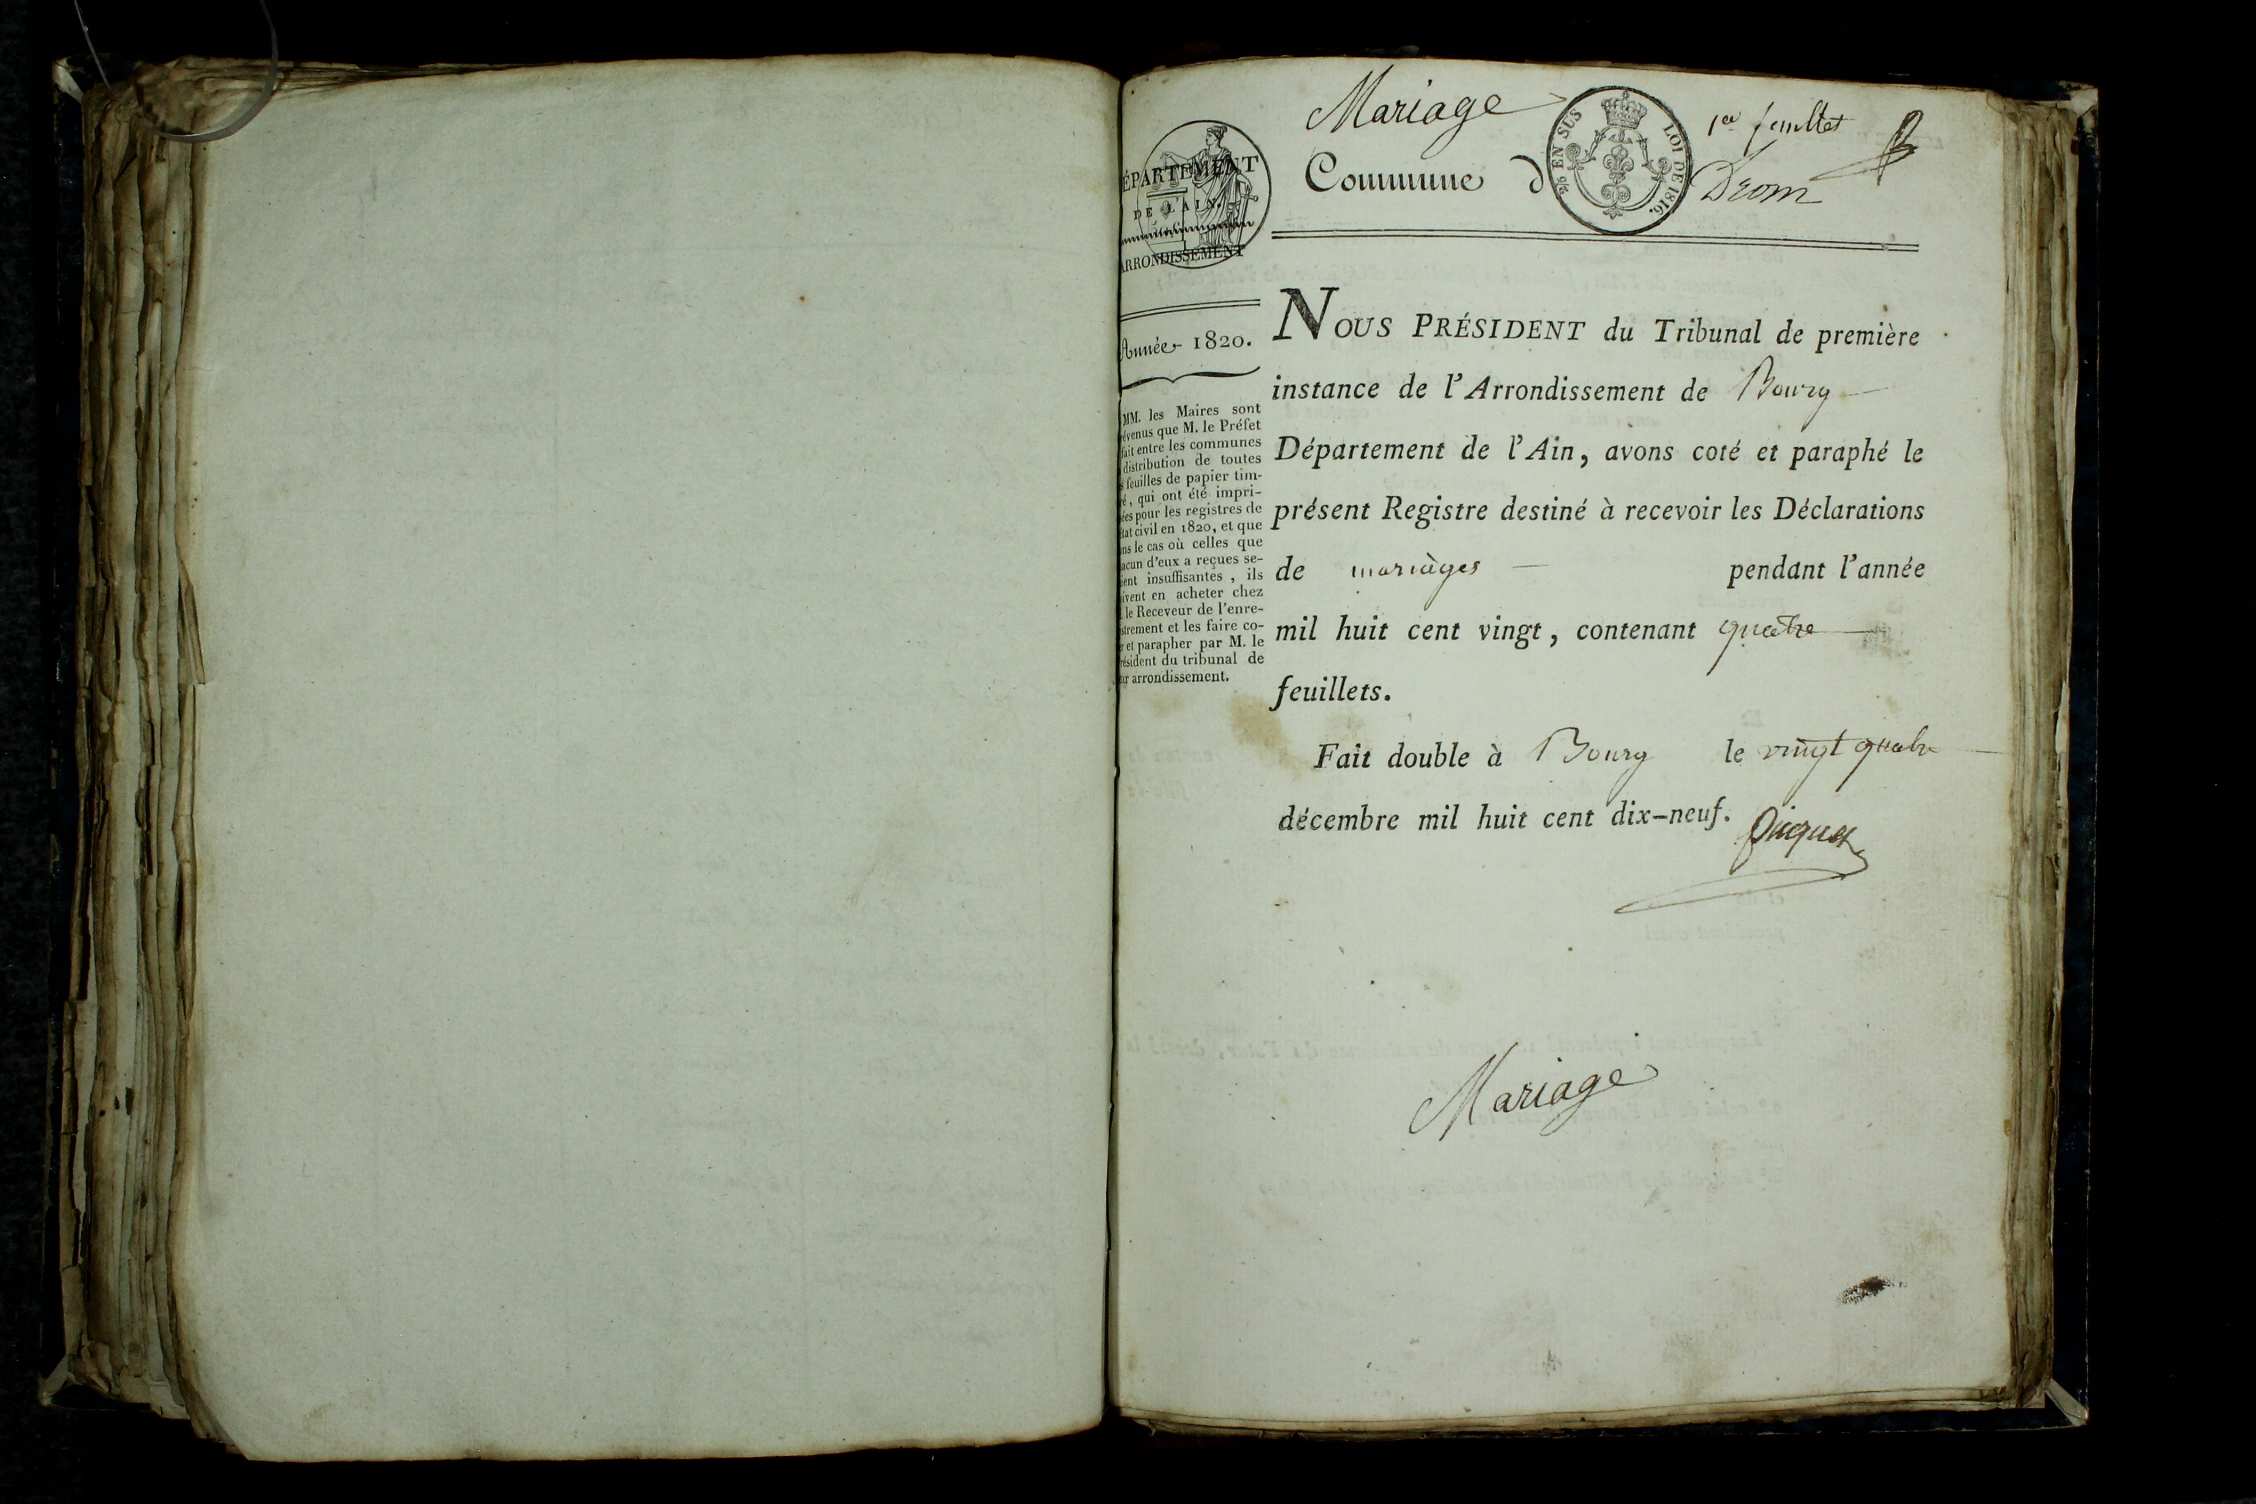 Mariage
1er feuillet
Commune d
Drom
25 EN SUS
LOI DE 1816.
ÉPARTEMENT
DE L'AIN.
ARRONDISSEMENT
Année 1820.
MM. les Maires sont
évenus que M. le Préfet
fait entre les communes
distribution de toutes
s feuilles de papier tim-
ré, qui ont été impri-
ées pour les registres de
état civil en 1820, et que
ns le cas où celles que
acun d'eux a reçues se-
ient insuffisantes, ils
ivent en acheter chez
le Receveur de l'enre-
strement et les faire co-
r et parapher par M. le
résident du tribunal de
ur arrondissement.
NOUS PRÉSIDENT du Tribunal de première
instance de l'Arrondissement de Bourg
Département de l'Ain, avons coté et paraphé le
présent Registre destiné à recevoir les Déclarations
de mariàges pendant l'année
mil huit cent vingt, contenant quatre
feuillets.
Fait double à Bourg le vingt quatre
décembre mil huit cent dix-neuf.
Mariage